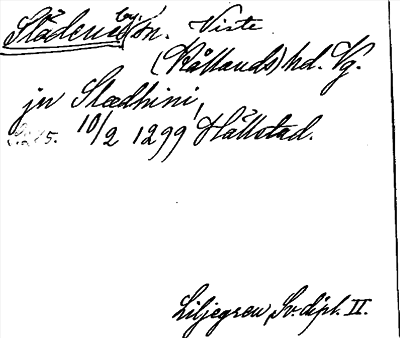 Slädene by sn. Viste
(Kållands) hd. Vg.
jn Slædhini,
10/2 1299 Hållstad.
Liljegren Sv. dipl. II.